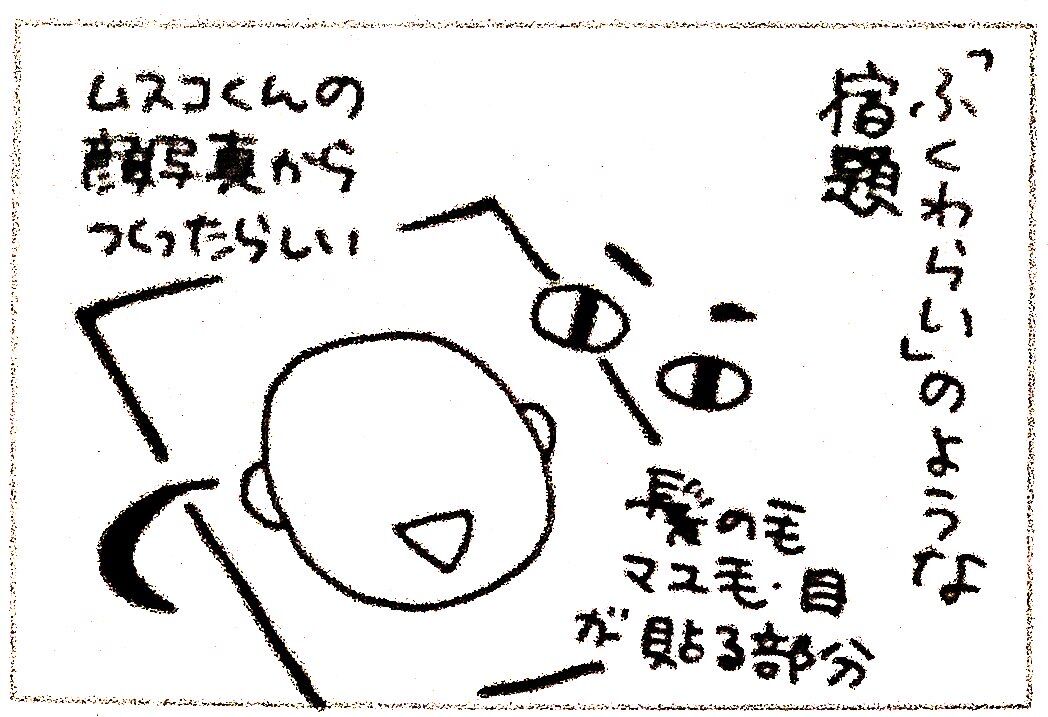 「ふくわらい」のような
宿題
ムスコくんの
顔写真から
つくったらしい
髪の毛
マユ毛・目
が貼る部分